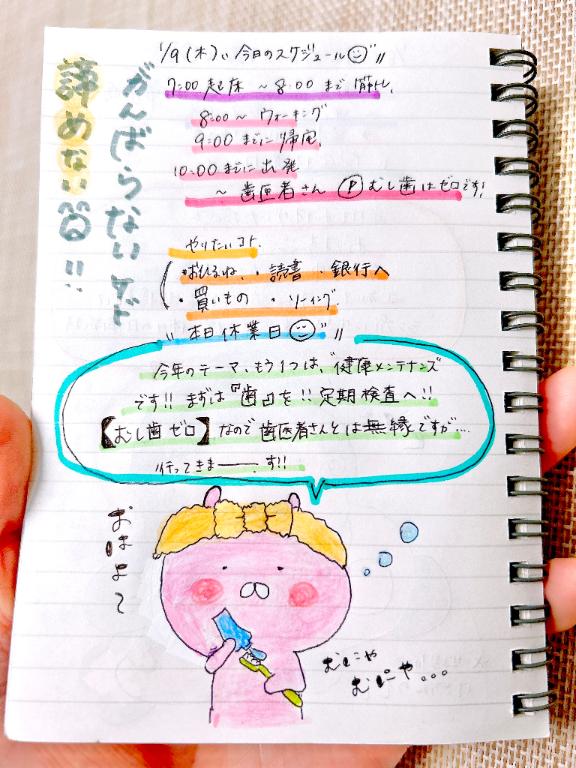 1/9(木)、今日のスケジュール
がんばらないケド
諦めないぞ!!
7:00 起床 ~ 8:00 まで 筋トレ、
8:00 ~ ウォーキング
9:00 までに帰宅、
10:00 までに出発
~ 歯医者さん Ⓟ むし歯はゼロです!
やりたいコト、
・おひるね、・読書 ・銀行へ
・買いもの ・ソーイング
"本日休業日"
今年のテーマ、もう1つは、"健康メンテナンズ
です!! まずは『歯』を!! 定期検査へ!!
【むし歯ゼロ】なので歯医者さんとは無縁ですが…
行ってきまーーす!!
おはよて
むにゃ
むにゃ...